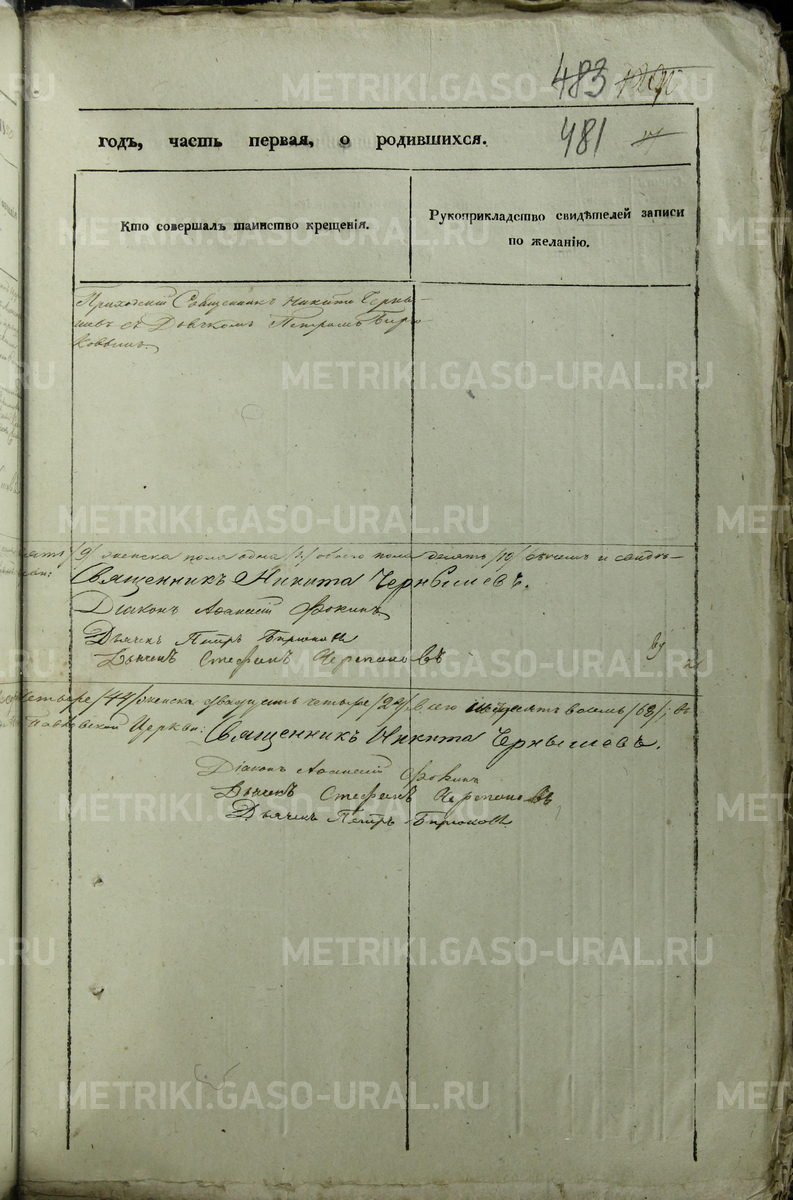 483
481
годъ, часть первая, о родившихся.
Кто совершалъ таинство крещенія.
Рукоприкладство свидѣтелей записи
по желанію.
Приходскій Священникъ Никита Черны-
шевъ съ Дьячкомъ Петромъ Бирю-
ковымъ.
/9/ женска пола одна /1/ обоего пола десять /10/ въ чемъ и свидѣ-
Священникъ Никита Чернышевъ.
Діаконъ Афанасій Фокинъ
Дьячекъ Петръ Бирюковъ
Дьячекъ Стефанъ Черепановъ
четыре /44/ женска двадцать четыре /24/ всего шестьдесятъ восемь /68/; въ
Церкви: Священникъ Никита Чернышевъ.
Діаконъ Афанасій Фокинъ
Дьячекъ Стефанъ Черепановъ
Дьячекъ Петръ Бирюковъ
METRIKI.GASO-URAL.RU